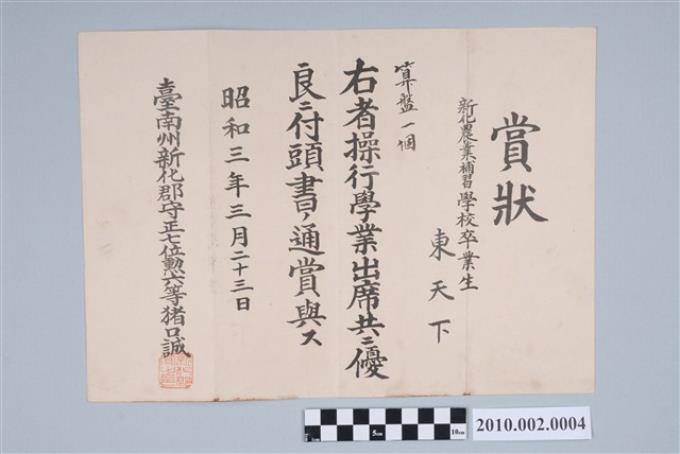 賞狀
新化農業補習學校卒業生
東天下
算盤一個
右者操行學業出席共ニ優
良ニ付頭書ノ通賞與ス
昭和三年三月二十三日
臺南州新化郡守正七位勲六等猪口誠
5cm
10cm
2010.002.0004